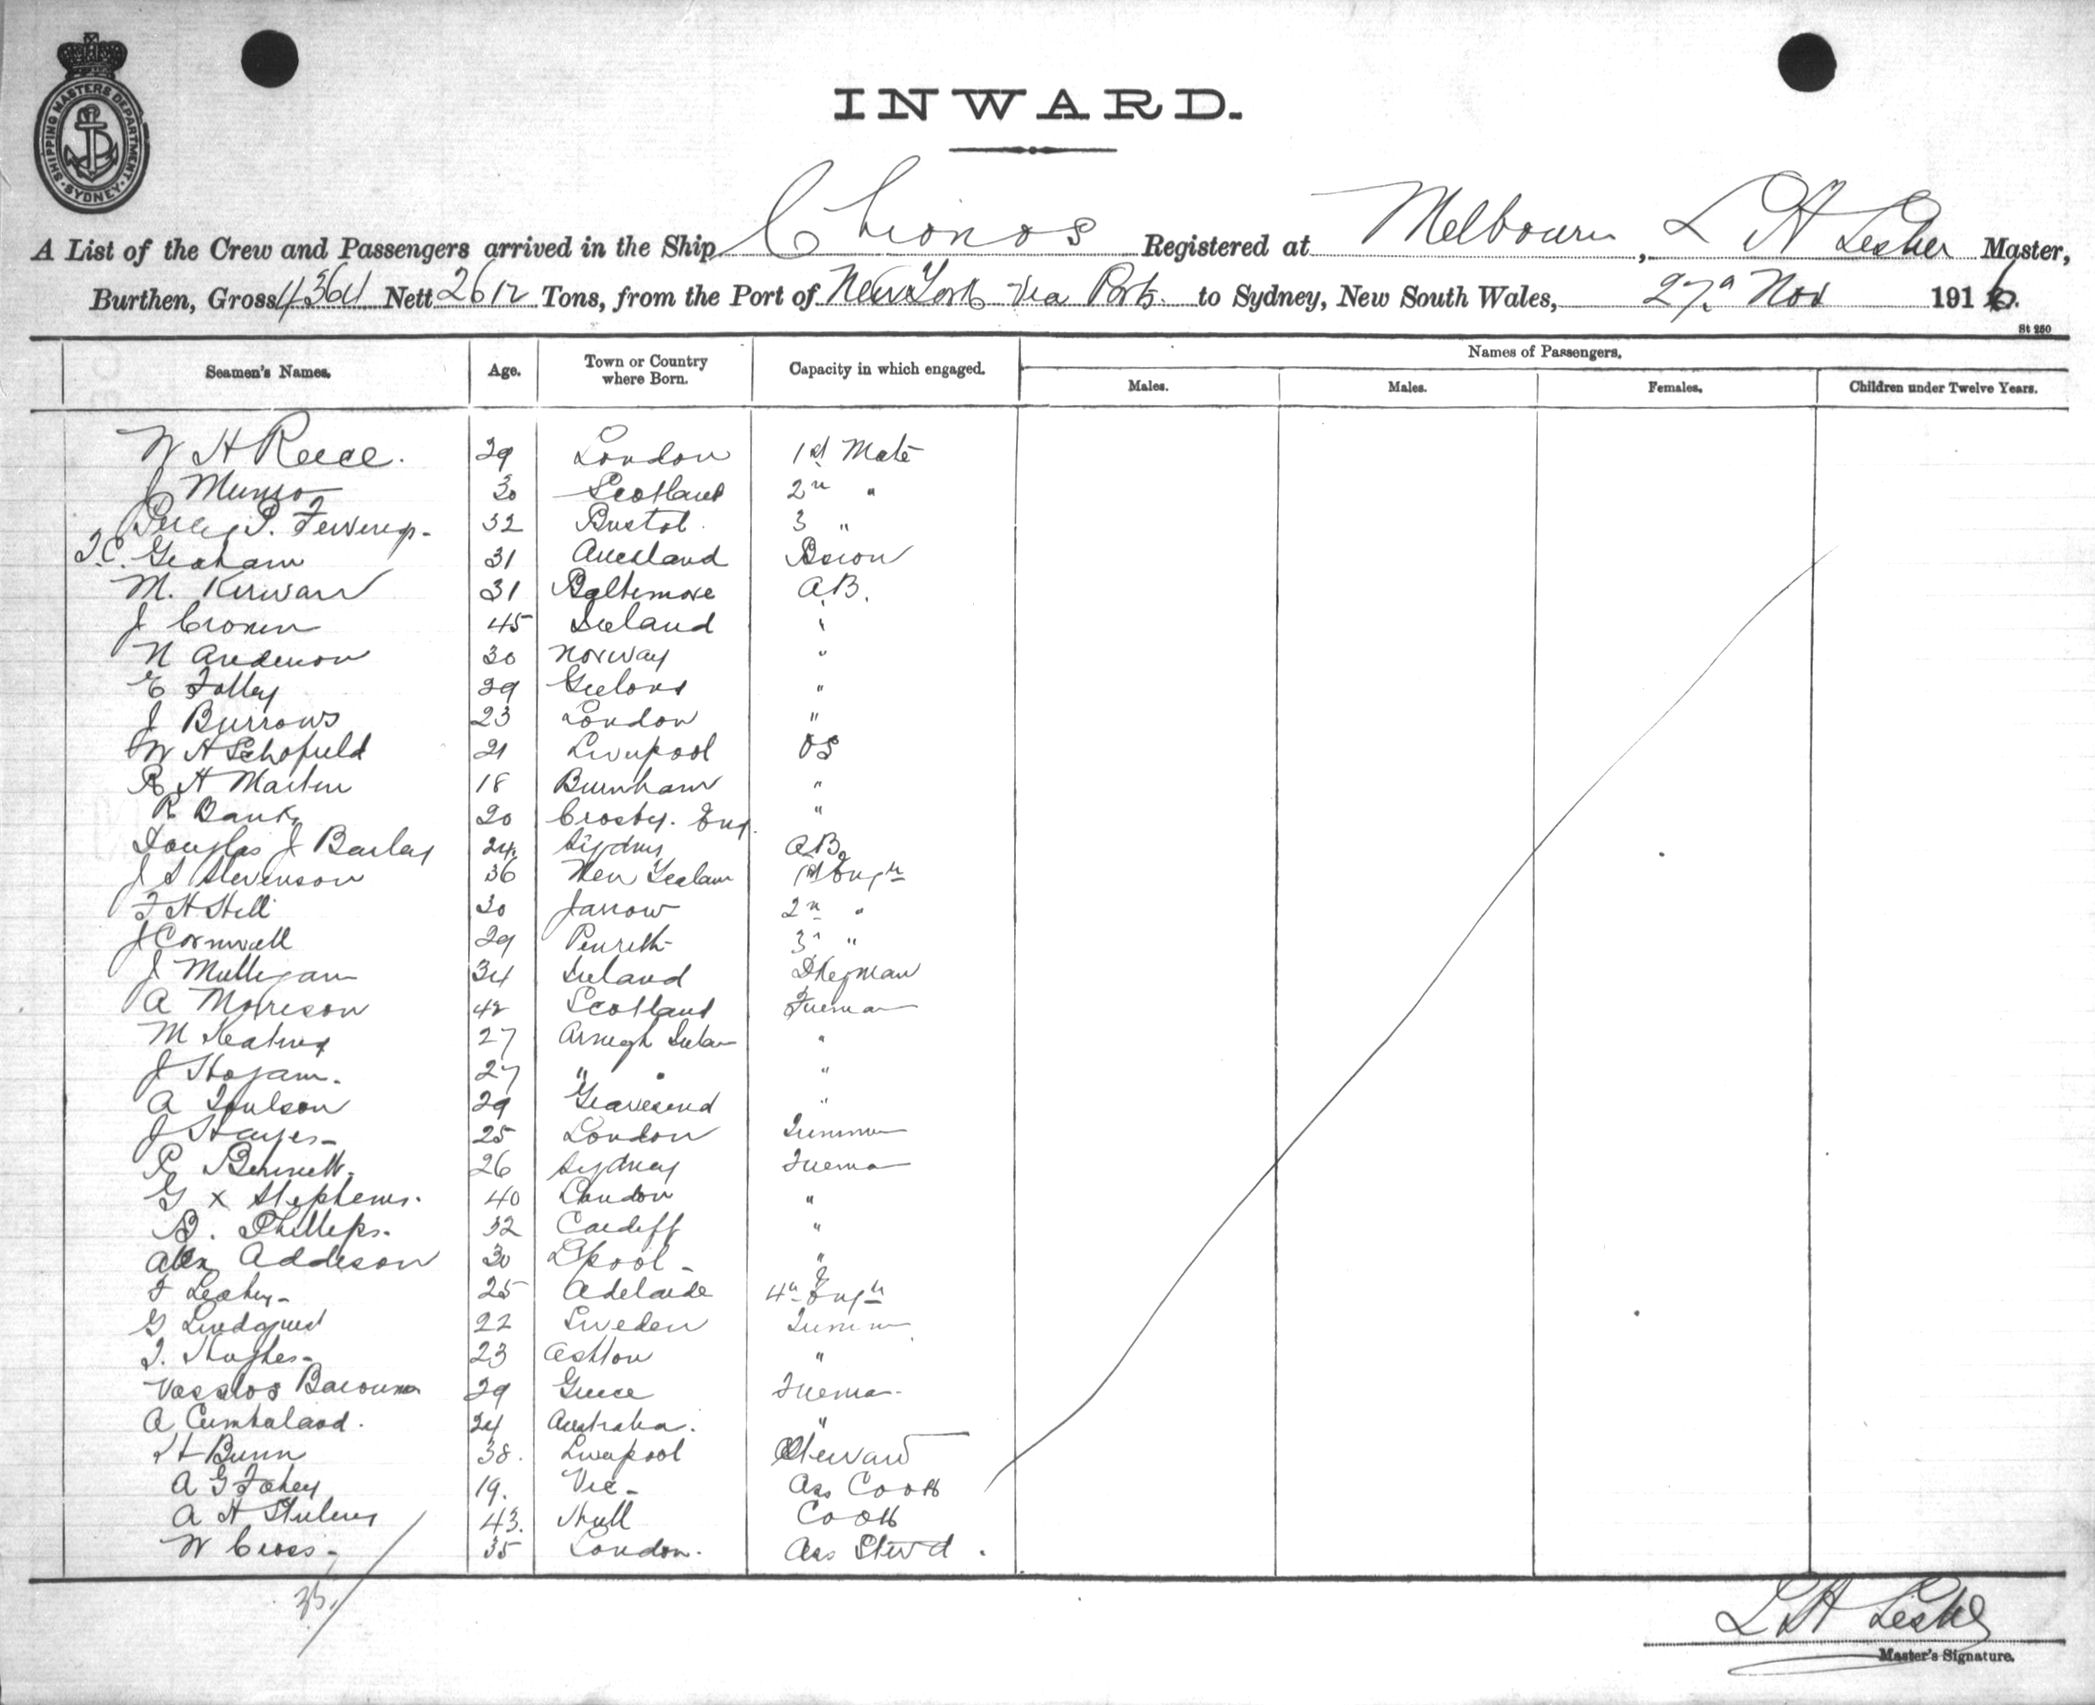 SHIPPING MASTERS DEPARTMENT · SYDNEY ·
INWARD.
A List of the Crew and Passengers arrived in the Ship Chronos Registered at Melbourn, L H Leslie Master,
Burthen, Gross 4364 Nett 2612 Tons, from the Port of New York via Ports to Sydney, New South Wales, 27 Nov 1916.
St 250
Seamen's Names. Age. Town or Country where Born. Capacity in which engaged. Names of Passengers.
Males. Males. Females. Children under Twelve Years.
W H Reece. 29 London 1st Mate
J Munro 30 Scotland 2n "
Percy P. 32 Bristol. 3 "
T.C. Graham 31 Auckland Bosun
M. Kirwan 31 Baltimore A.B.
J Cronin 45 Ireland "
N Anderson 30 Norway "
E Folley 29 Geelong "
J Burrows 23 London "
W H Schofield 21 Liverpool OS
R H Martin 18 Burnham "
R Banks 20 Crosby. Eng. "
Douglas J Barclay 24. Sydney A.B.
J S Stevenson 36 New Zealan 1st Engr
F H Hill 30 Jarrow 2n "
J Cornwall 29 Penrith 3r "
J Mulligan 34 Ireland Dkeyman
A Morrison 42 Scotland Fireman
M Keating 27 Armagh Irelan "
J Hogan. 27 " " "
A Poulson 29 Gravesend "
J Hayes 25 London Trimmer
R Bennett. 26 Sydney Fireman
G x Stephens. 40 London "
B. Phillips. 32 Cardiff "
Alex Addison 30 L'pool "
F Leahy 25 Adelaide 4th Engr
G Lindquist 22 Sweden Trimmer
T. Hughes 23 Ashton "
Vassilos 29 Greece Fireman
A Cumberland. 24 Australia. "
H Bunn 38. Liverpool Steward
A G Fahey 19. Vic Ass Cook
A H 43. Hull Cook
W Cross 35 London. Ass Stewd.
35.
L H Leslie
Master's Signature.